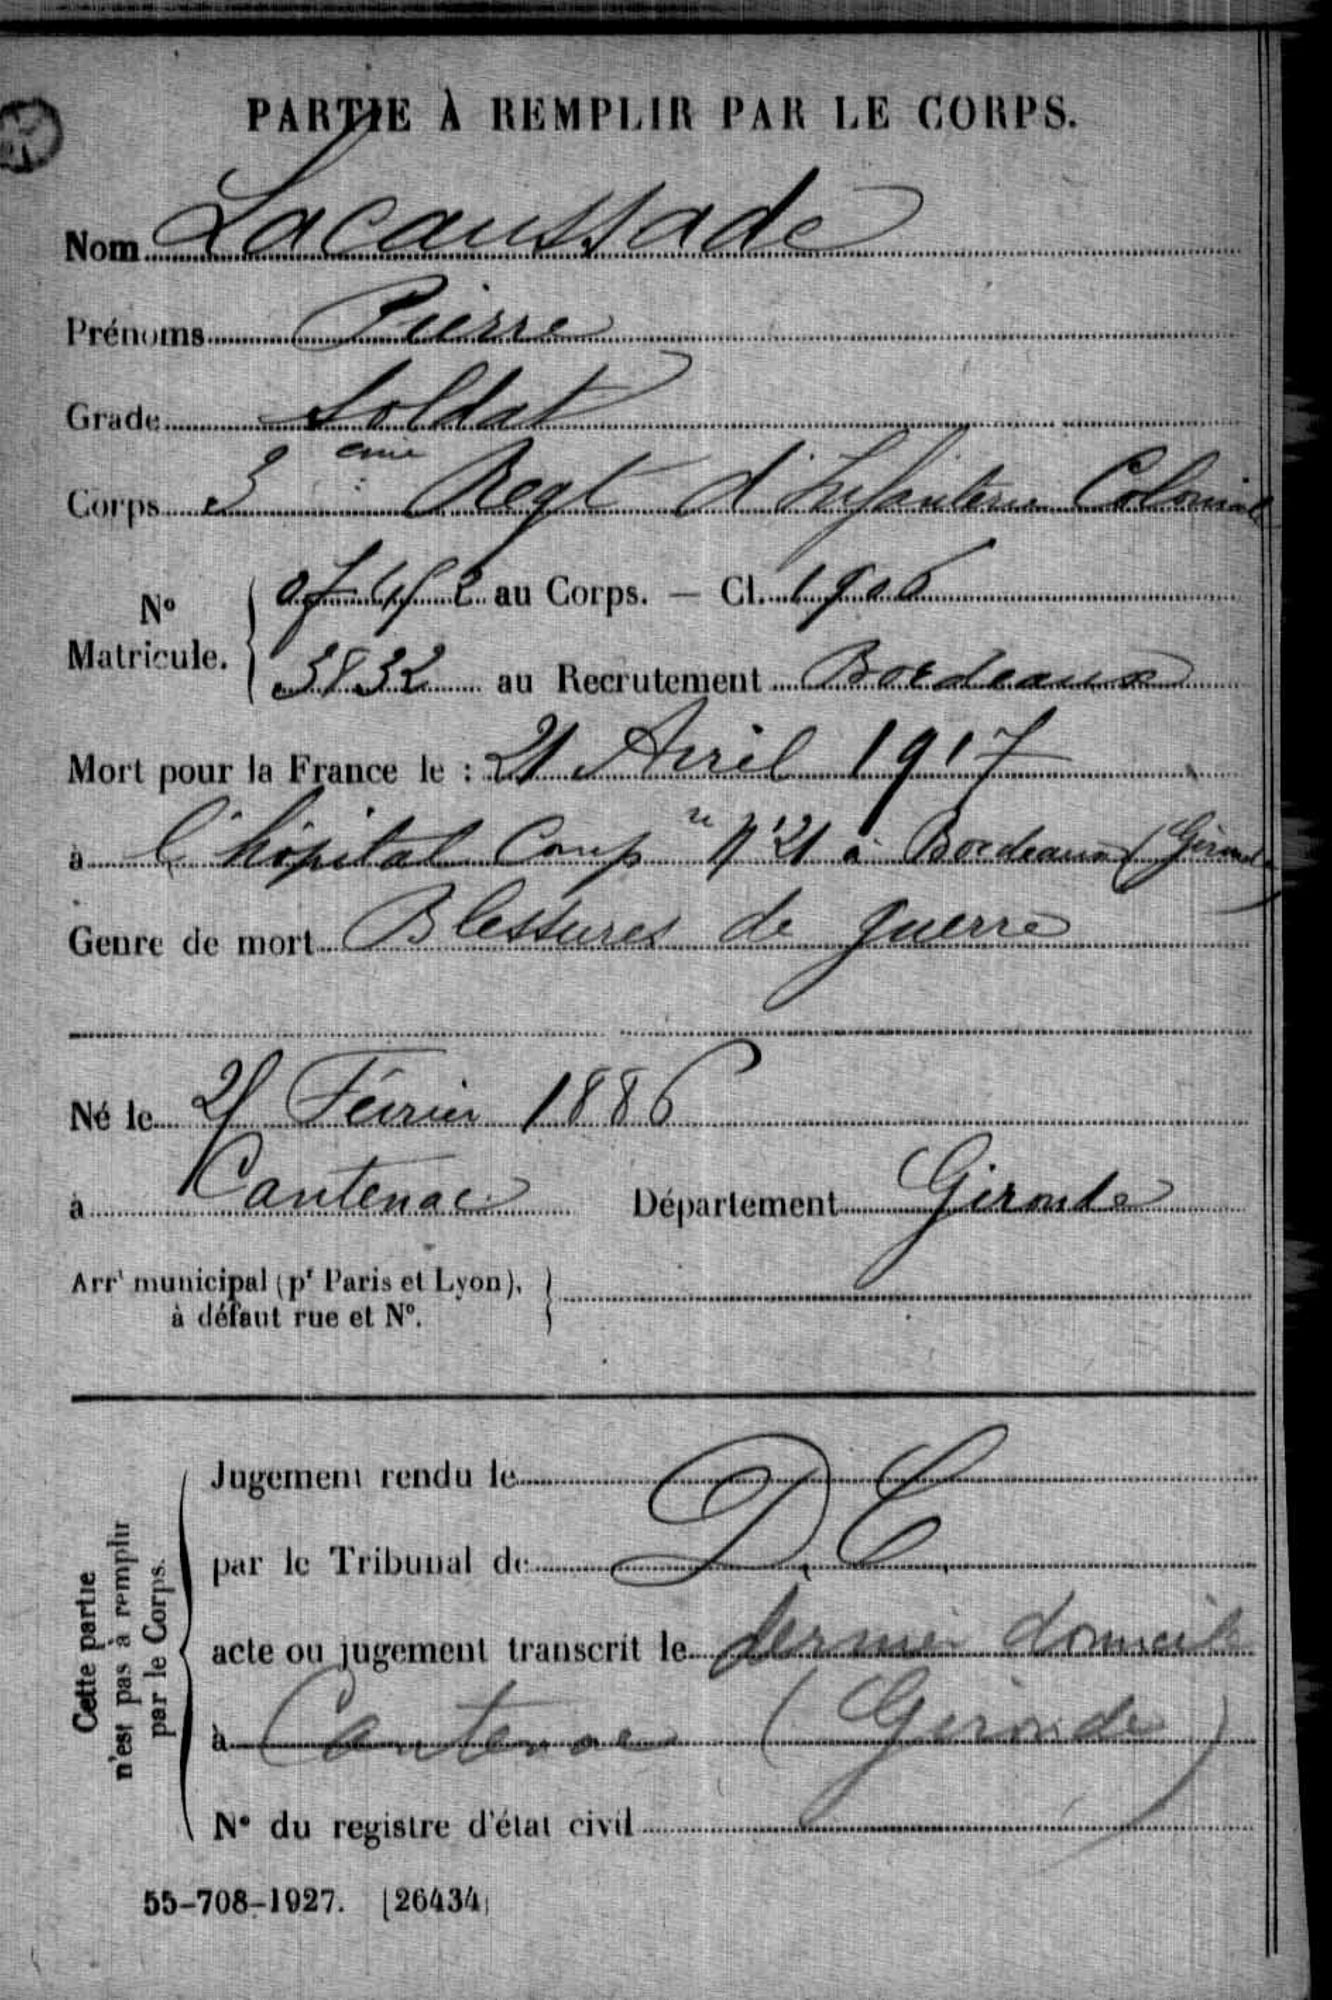 PARTIE À REMPLIR PAR LE CORPS.
Nom Lacaussade
Prénoms Pierre
Grade Soldat
Corps 3 eme Regt d'Infanterie Colonial
N° Matricule. au Corps. — Cl. 1906
3832 au Recrutement Bordeaux
Mort pour la France le : 21 Avril 1917
à l'hôpital Comp re N° 21 à Bordeaux (Gironde)
Genre de mort Blessures de guerre
Né le Février 1886
à Cantenac Département Gironde
Arrt municipal (pr Paris et Lyon),
à défaut rue et N°.
Cette partie
n'est pas à remplir
par le Corps.
Jugement rendu le
par le Tribunal de D. C.
acte ou jugement transcrit le dernier domicile
à Cantenac (Gironde)
N° du registre d'état civil
55-708-1927. [26434]